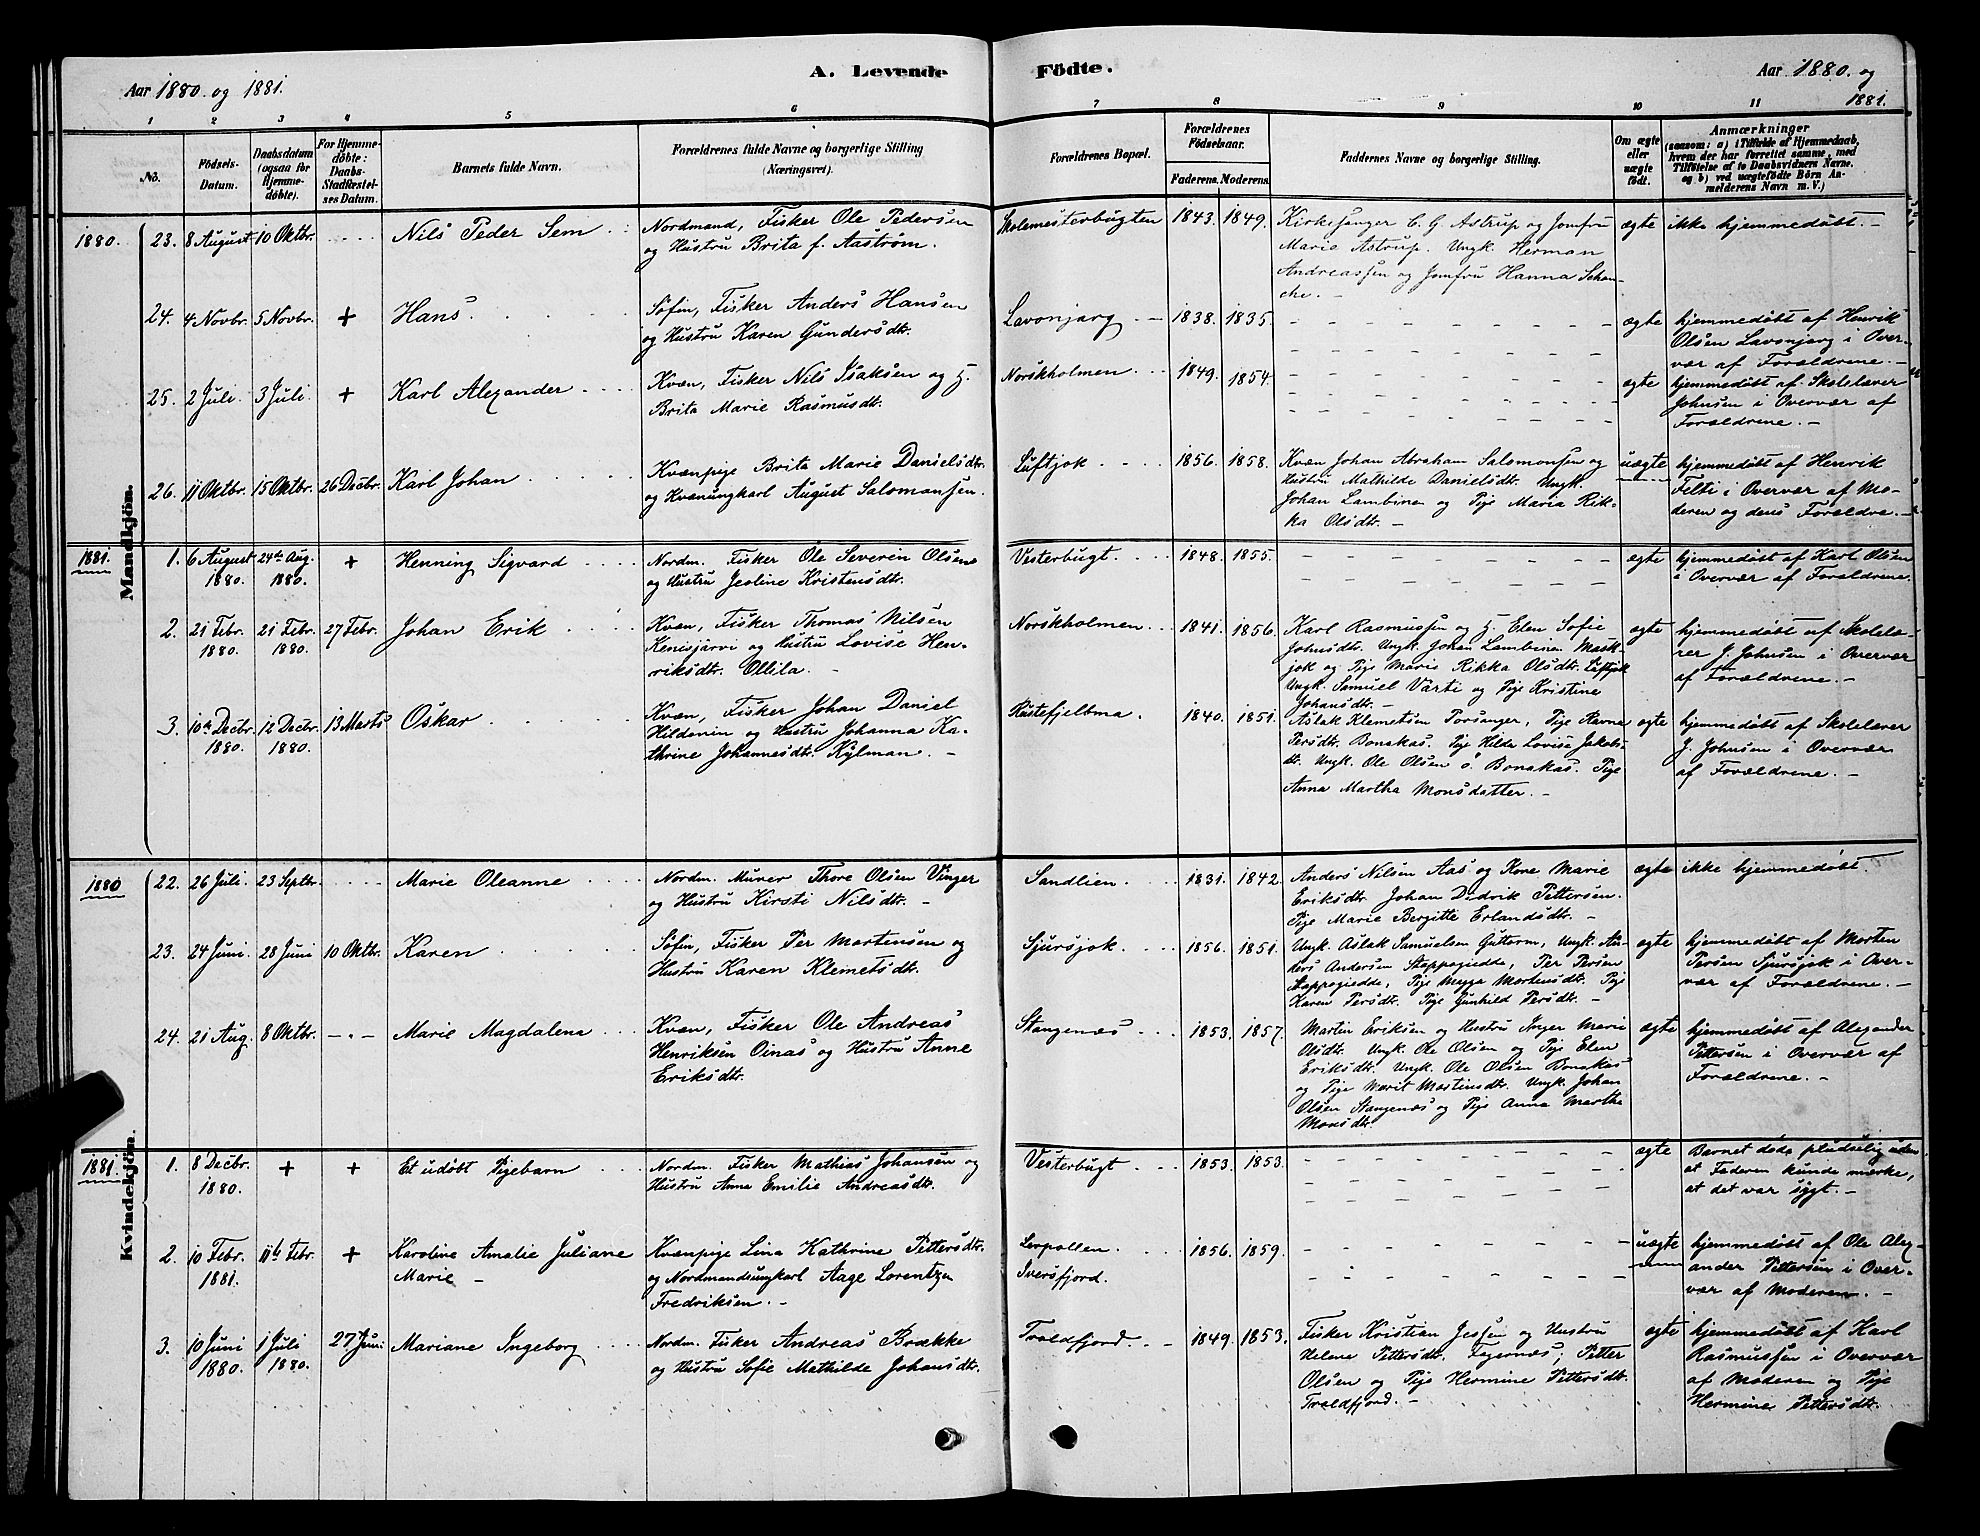 A. Levende Födte.
Aar 1880. og 1881.
Aar 1880. og
1881.
1 2 3 4 5 6 7 8 9 10 11
No.
Födsels-
Datum.
Daabsdatum
(ogsaa for
Hjemme-
døbte).
For Hjemme-
døbte:
Daabs-
Stadfæstel-
ses Datum.
Barnets fulde Navn.
Forældrenes fulde Navne og borgerlige Stilling
(Næringsvei).
Forældrenes Bopæl.
Forældrenes
Födselsaar.
Faderens. Moderens.
Faddernes Navne og borgerlige Stilling.
Om ægte
eller
uægte
født.
Anmærkninger
(saasom: a) i Tilfælde af Hjemmedaab,
hvem der har forrettet samme, med
Tilföielse af to Daabsvidners Navne,
og b) ved uægtefødte Börn An-
melderens Navn m. V.)
Mandkjön.
1880. 23. 8 August 10 Oktbr. Nils Peder Sem
Nordmand, Fisker Ole Pedersen
og Hustru Brita f. Aaström.
Skolemesterbugten 1843. 1849.
Kirkesanger C. G. Astrup og Jomfru
Marie Astrup. Ungk. Herman
Andreassen og Jomfru Hanna Schan-
che. –
ægte ikke hjemmedøbt. –
24. 4 Novbr. 5 Novbr. + Hans.
Søfin, Fisker Anders Hansen
og Hustru Karen Gundersdtr.
Lavonjarg – 1838. 1835.
ægte hjemmedøbt af Henrik
Olsen Lavonjarg i Over-
vær af Forældrene. –
25. 2 Juli. 3 Juli. + Karl Alexander
Kvæn, Fisker Nils Isaksen og H.
Brita Marie Rasmusdtr.
Norskholmen 1849. 1854.
ægte hjemmedøbt af Skolelærer
Johnsen i Overvær af
Forældrene. –
26. 11 Oktbr. 15 Oktbr. 26 Decbr. Karl Johan
Kvænpige Brita Marie Danielsdtr.
og Kvænungkarl August Salomonsen.
Luftjok 1856. 1858.
Kvæn Johan Abraham Salomonsen og
Hustru Mathilde Danielsdt. Ungk.
Johan Lambine og Pige Maria Rik-
ka Olsdtr. –
uægte hjemmedøbt af Henrik
Felti i Overvær af Mo-
deren og dens Forældre. –
1881. 1. 6 August 24de Aug. + Henning Sigvard
1880. 1880.
Nordm. Fisker Ole Severin Olsen
og Hustru Jeoline Kristensdtr.
Vesterbugt 1848. 1855.
ægte hjemmedøbt af Karl Olsen
i Overvær af Forældrene.
2. 21 Febr. 21 Febr. 27 Febr. Johan Erik
1880. 1880.
Kvæn, Fisker Thomas Nilsen
Kenisjärvi og Hustru Lovise Hen-
riksdtr. Ollila. –
Norskholmen 1841. 1856.
Karl Rasmussen og H. Elen Sofie
Johnsdtr. Ungk. Johan Lambine Mask-
jok og Pige Maria Rikka Olsdtr. Luftjok
Ungk. Samuel Varti og Pige Kristine
Johansdtr. –
ægte hjemmedøbt af Skolelæ-
rer J. Johnsen i Overvær
af Forældrene. –
3. 10de Decbr. 12 Decbr. 13 Marts Oskar
1880. 1880.
Kvæn, Fisker Johan Daniel
Hildonin og Hustru Johanna Ka-
thrine Johannesdtr. Kylman. –
Rustefjelbma. 1840. 1851.
Aslak Klemetsen Porsanger, Pige Ravna
Persdtr. Bonakas. Pige Hilda Lovise Jakobs-
dtr. Ungk. Ole Olsen s. Bonakas. Pige
Anna Martha Monsdatter. –
ægte hjemmedøbt af Skolelærer
J. Johnsen i Overvær
af Forældrene. –
Kvindekjön.
1880 22. 26 Juli. 23 Septbr. Marie Oleanne
Nordm. Murer Thore Olsen Vinger
og Hustru Kirsti Nilsdtr. –
Sandlien. 1831. 1842.
Anders Nilsen Aas og Kone Marie
Eriksdtr. Johan Didrik Pettersen.
Pige Marie Bergitte Erlandsdtr. –
ægte ikke hjemmedøbt.
23. 24 Juni. 28 Juni 10 Oktbr. Karen
Søfin, Fisker Per Mortensen og
Hustru Karen Klemetsdtr.
Sjursjok. 1856. 1851.
Ungk. Aslak Samuelsen Guttorm, Ungk. An-
ders Andersen Stappogiedde, Per Persen
Stappogiedde, Pige Magga Mortensdtr. Pige
Karen Persdtr. Pige Gunhild Persdtr. –
ægte hjemmedøbt af Morten
Persen Sjursjok i Over-
vær af Forældrene. –
24. 21 Aug. 8 Oktbr. –.– Marie Magdalena
Kvæn, Fisker Ole Andreas
Henriksen Oinas og Hustru Anne
Eriksdtr.
Stangenæs 1853. 1857.
Martin Eriksen og Hustru Inger Marie
Olsdtr. Ungk. Ole Olsen og Pige Elen
Eriksdtr. Ungk. Ole Olsen Bonakas
og Pige Marit Mortensdtr. Ungk. Johan
Olsen Stangenæs og Pige Anna Martha
Monsdtr.
ægte hjemmedøbt af Alexander
Pettersen i Overvær af
Forældrene. –
1881. 1. 8 Decbr. + + Et udøbt Pigebarn
1880.
Nordm. Fisker Mathias Johansen og
Hustru Anna Emilie Andreasdtr.
Vesterbugt 1853. 1853.
ægte Barnet døde pludselig uden
at Faderen kunde mærke,
at det var sygt. –
2. 10 Febr. 11te Febr. + Karoline Amalie Juliane
1881. Marie –
Kvænpige Lina Kathrine Pettersdtr.
og Nordmandsungkarl Aage Lorentzen
Fredriksen. –
Levpollen.
Iversfjord.
1856. 1859.
uægte hjemmedøbt af Ole Alex-
ander Pettersen i Over-
vær af Moderen. –
3. 10 Juni 1 Juli 27 Juni Mariane Ingeborg
1880. 1880.
Nordm. Fisker Andreas Brække
og Hustru Sofie Mathilde Johansdtr.
Troldfjord. 1849. 1853.
Fisker Kristian Jessen og Hustru
Helene Pettersdt. Fagernæs, Petter
Olsen og Pige Hermine Pettersdtr.
Troldfjord. –
ægte hjemmedøbt af Karl
Rasmussen i Overvær
af Moderen og Pige
Hermine Pettersdtr.